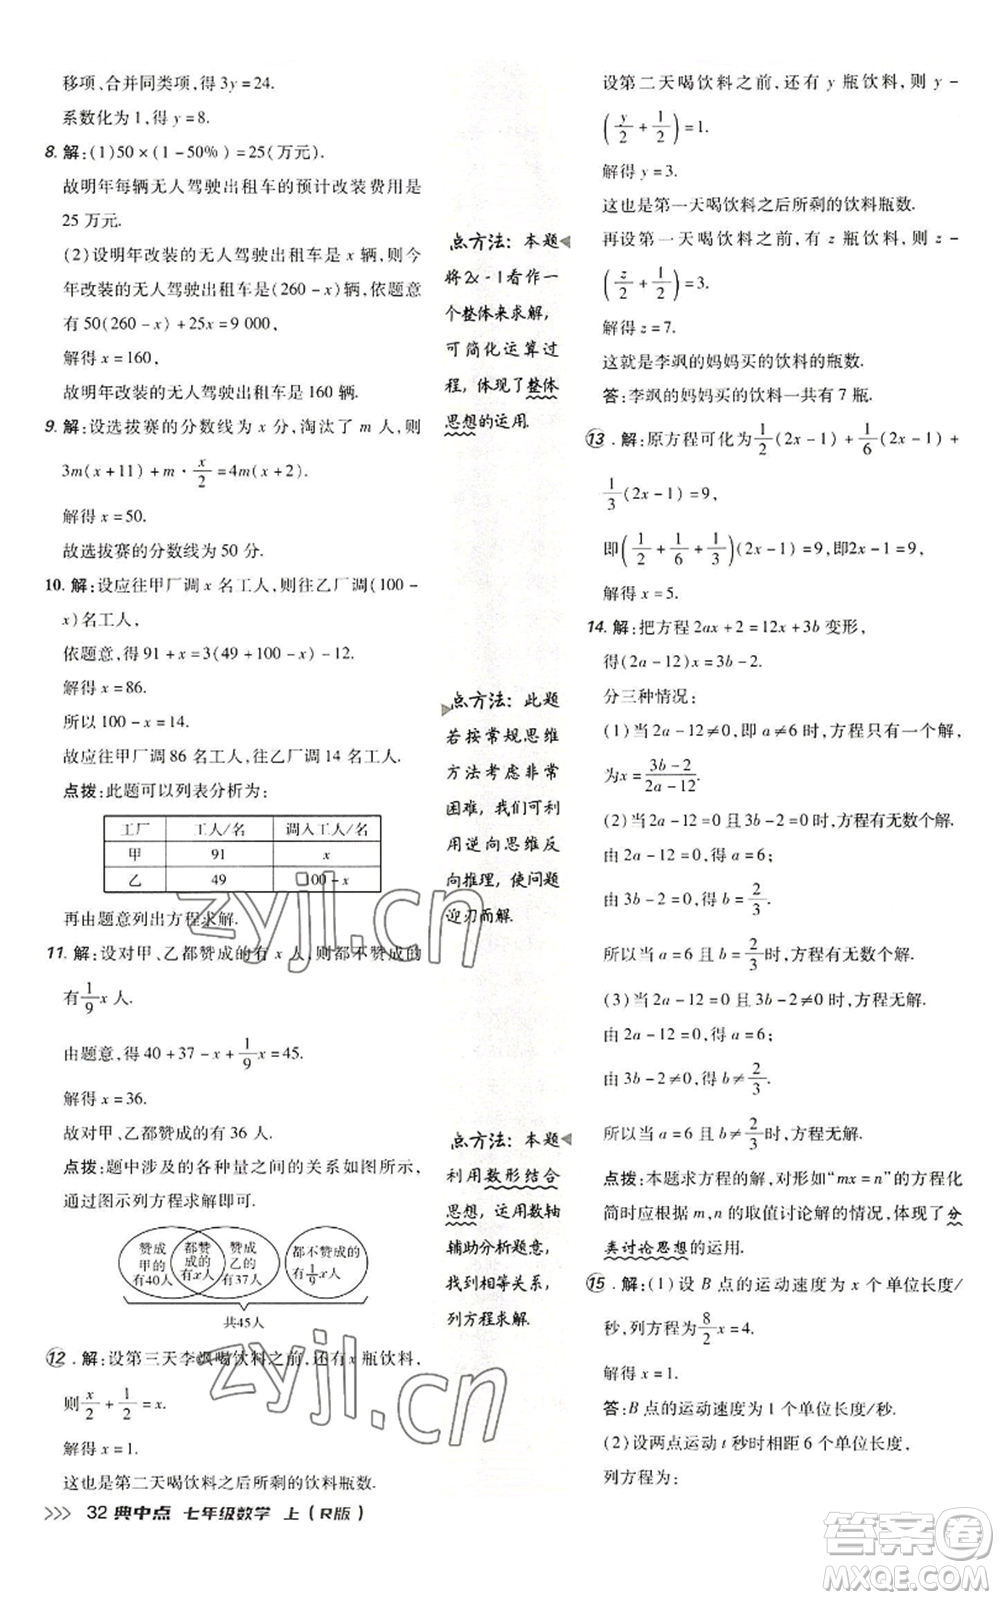 移项、合并同类项,得 3y=24.
系数化为 1,得 y=8.
8. 解:(1)50×(1-50%)=25(万元).
故明年每辆无人驾驶出租车的预计改装费用是
25 万元.
(2)设明年改装的无人驾驶出租车是 x 辆,则今
年改装的无人驾驶出租车是(260-x)辆,依题意
有 50(260-x)+25x=9 000,
解得 x=160,
故明年改装的无人驾驶出租车是 160 辆.
9. 解:设选拔赛的分数线为 x 分,淘汰了 m 人,则
3m(x+11)+m·x/2=4m(x+2).
解得 x=50.
故选拔赛的分数线为 50 分.
10. 解:设应往甲厂调 x 名工人,则往乙厂调(100-
x)名工人,
依题意,得 91+x=3(49+100-x)-12.
解得 x=86.
所以 100-x=14.
故应往甲厂调 86 名工人,往乙厂调 14 名工人.
点拨:此题可以列表分析为:
工厂 工人/名 调入工人/名
甲 91 x
乙 49 100-x
再由题意列出方程求解.
11. 解:设对甲、乙都赞成的有 x 人,则都不赞成的
有1/9x 人.
由题意,得 40+37-x+1/9x=45.
解得 x=36.
故对甲、乙都赞成的有 36 人.
点拨:题中涉及的各种量之间的关系如图所示,
通过图示列方程求解即可.
赞成 都赞 赞成 都不赞成的
甲的 成的 乙的 有1/9x人
有40人 有x人 有37人
共45人
12. 解:设第三天李飒喝饮料之前,还有 x 瓶饮料,
则x/2+1/2=x.
解得 x=1.
这也是第二天喝饮料之后所剩的饮料瓶数.
点方法:本题
将2x-1看作一
个整体来求解,
可简化运算过
程,体现了整体
思想的运用.
点方法:此题
若按常规思维
方法考虑非常
困难,我们可利
用逆向思维反
向推理,使问题
迎刃而解.
点方法:本题
利用数形结合
思想,运用数轴
辅助分析题意,
找到相等关系,
列方程求解.
设第二天喝饮料之前,还有 y 瓶饮料,则 y-
(y/2+1/2)=1.
解得 y=3.
这也是第一天喝饮料之后所剩的饮料瓶数.
再设第一天喝饮料之前,有 z 瓶饮料,则 z-
(z/2+1/2)=3.
解得 z=7.
这就是李飒的妈妈买的饮料的瓶数.
答:李飒的妈妈买的饮料一共有 7 瓶.
13. 解:原方程可化为1/2(2x-1)+1/6(2x-1)+
1/3(2x-1)=9,
即(1/2+1/6+1/3)(2x-1)=9,即2x-1=9.
解得 x=5.
14. 解:把方程 2ax+2=12x+3b 变形,
得(2a-12)x=3b-2.
分三种情况:
(1)当 2a-12≠0,即 a≠6 时,方程只有一个解,
为x=(3b-2)/(2a-12).
(2)当 2a-12=0 且 3b-2=0时,方程有无数个解.
由 2a-12=0,得 a=6;
由 3b-2=0,得 b=2/3.
所以当 a=6 且 b=2/3时,方程有无数个解.
(3)当 2a-12=0 且 3b-2≠0 时,方程无解.
由 2a-12=0,得 a=6;
由 3b-2≠0,得 b≠2/3.
所以当 a=6 且 b≠2/3时,方程无解.
点拨:本题求方程的解,对形如“mx=n”的方程化
简时应根据 m,n 的取值讨论解的情况,体现了分
类讨论思想的运用.
15. 解:(1)设 B 点的运动速度为 x 个单位长度/
秒,列方程为8/2x=4.
解得 x=1.
答:B 点的运动速度为 1 个单位长度/秒.
(2)设两点运动 t 秒时相距 6 个单位长度,
列方程为:
>>> 32 典中点 七年级数学 上(R版)
zyjl.cn
zyjl.cn
答案圈
MXQE.COM